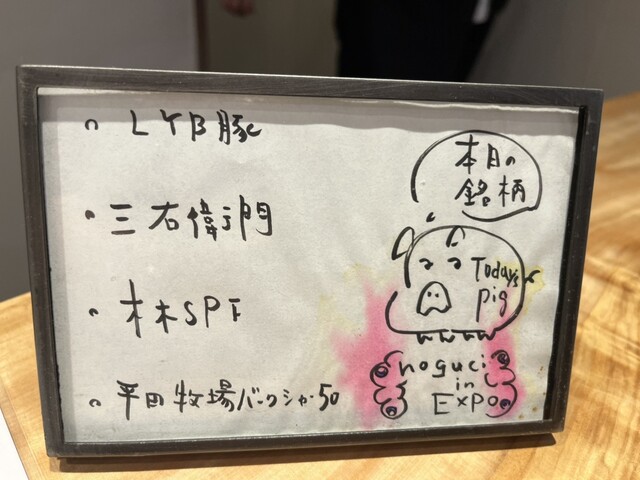 LYB豚
三右衛門
林SPF
平田牧場バークシャー50
本日の
銘柄
Today's
pig
noguci
in
EXPO